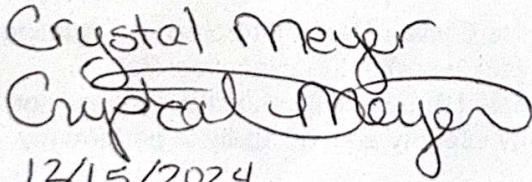 Crystal Meyer
Crystal Meyer
12/15/2024